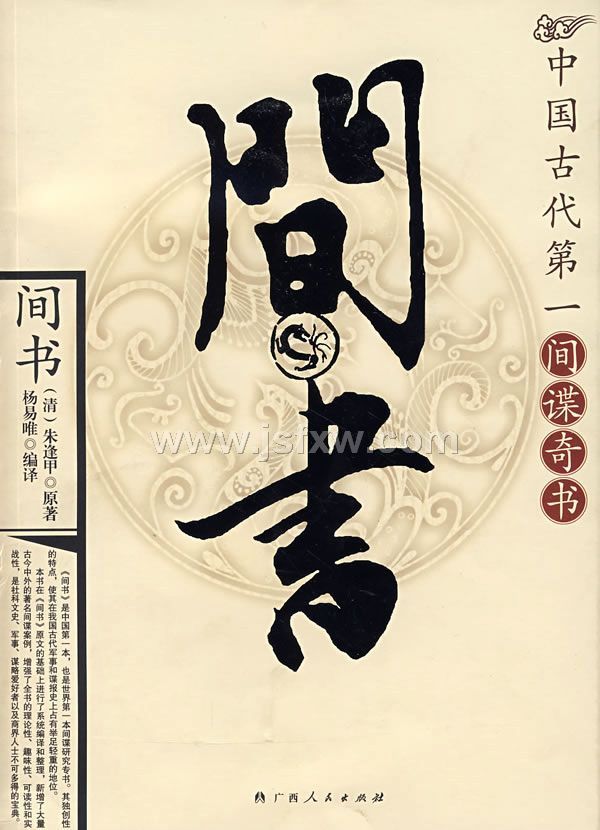 中国古代第一间谍奇书
間書
www.jsfxw.com
间书
（清）朱逢甲◎原著
杨易唯◎编译
《间书》是中国第一本，也是世界第一本间谍研究专书。其独创性
的特点，使其在我国古代军事和谍报史上占有举足轻重的地位。
本书在《间书》原文的基础上进行了系统编译和整理，新增了大量
古今中外的著名间谍案例，增强了全书的理论性、趣味性、可读性和实
战性，是社科文史、军事、谋略爱好者以及商界人士不可多得的宝典。
广西人民出版社